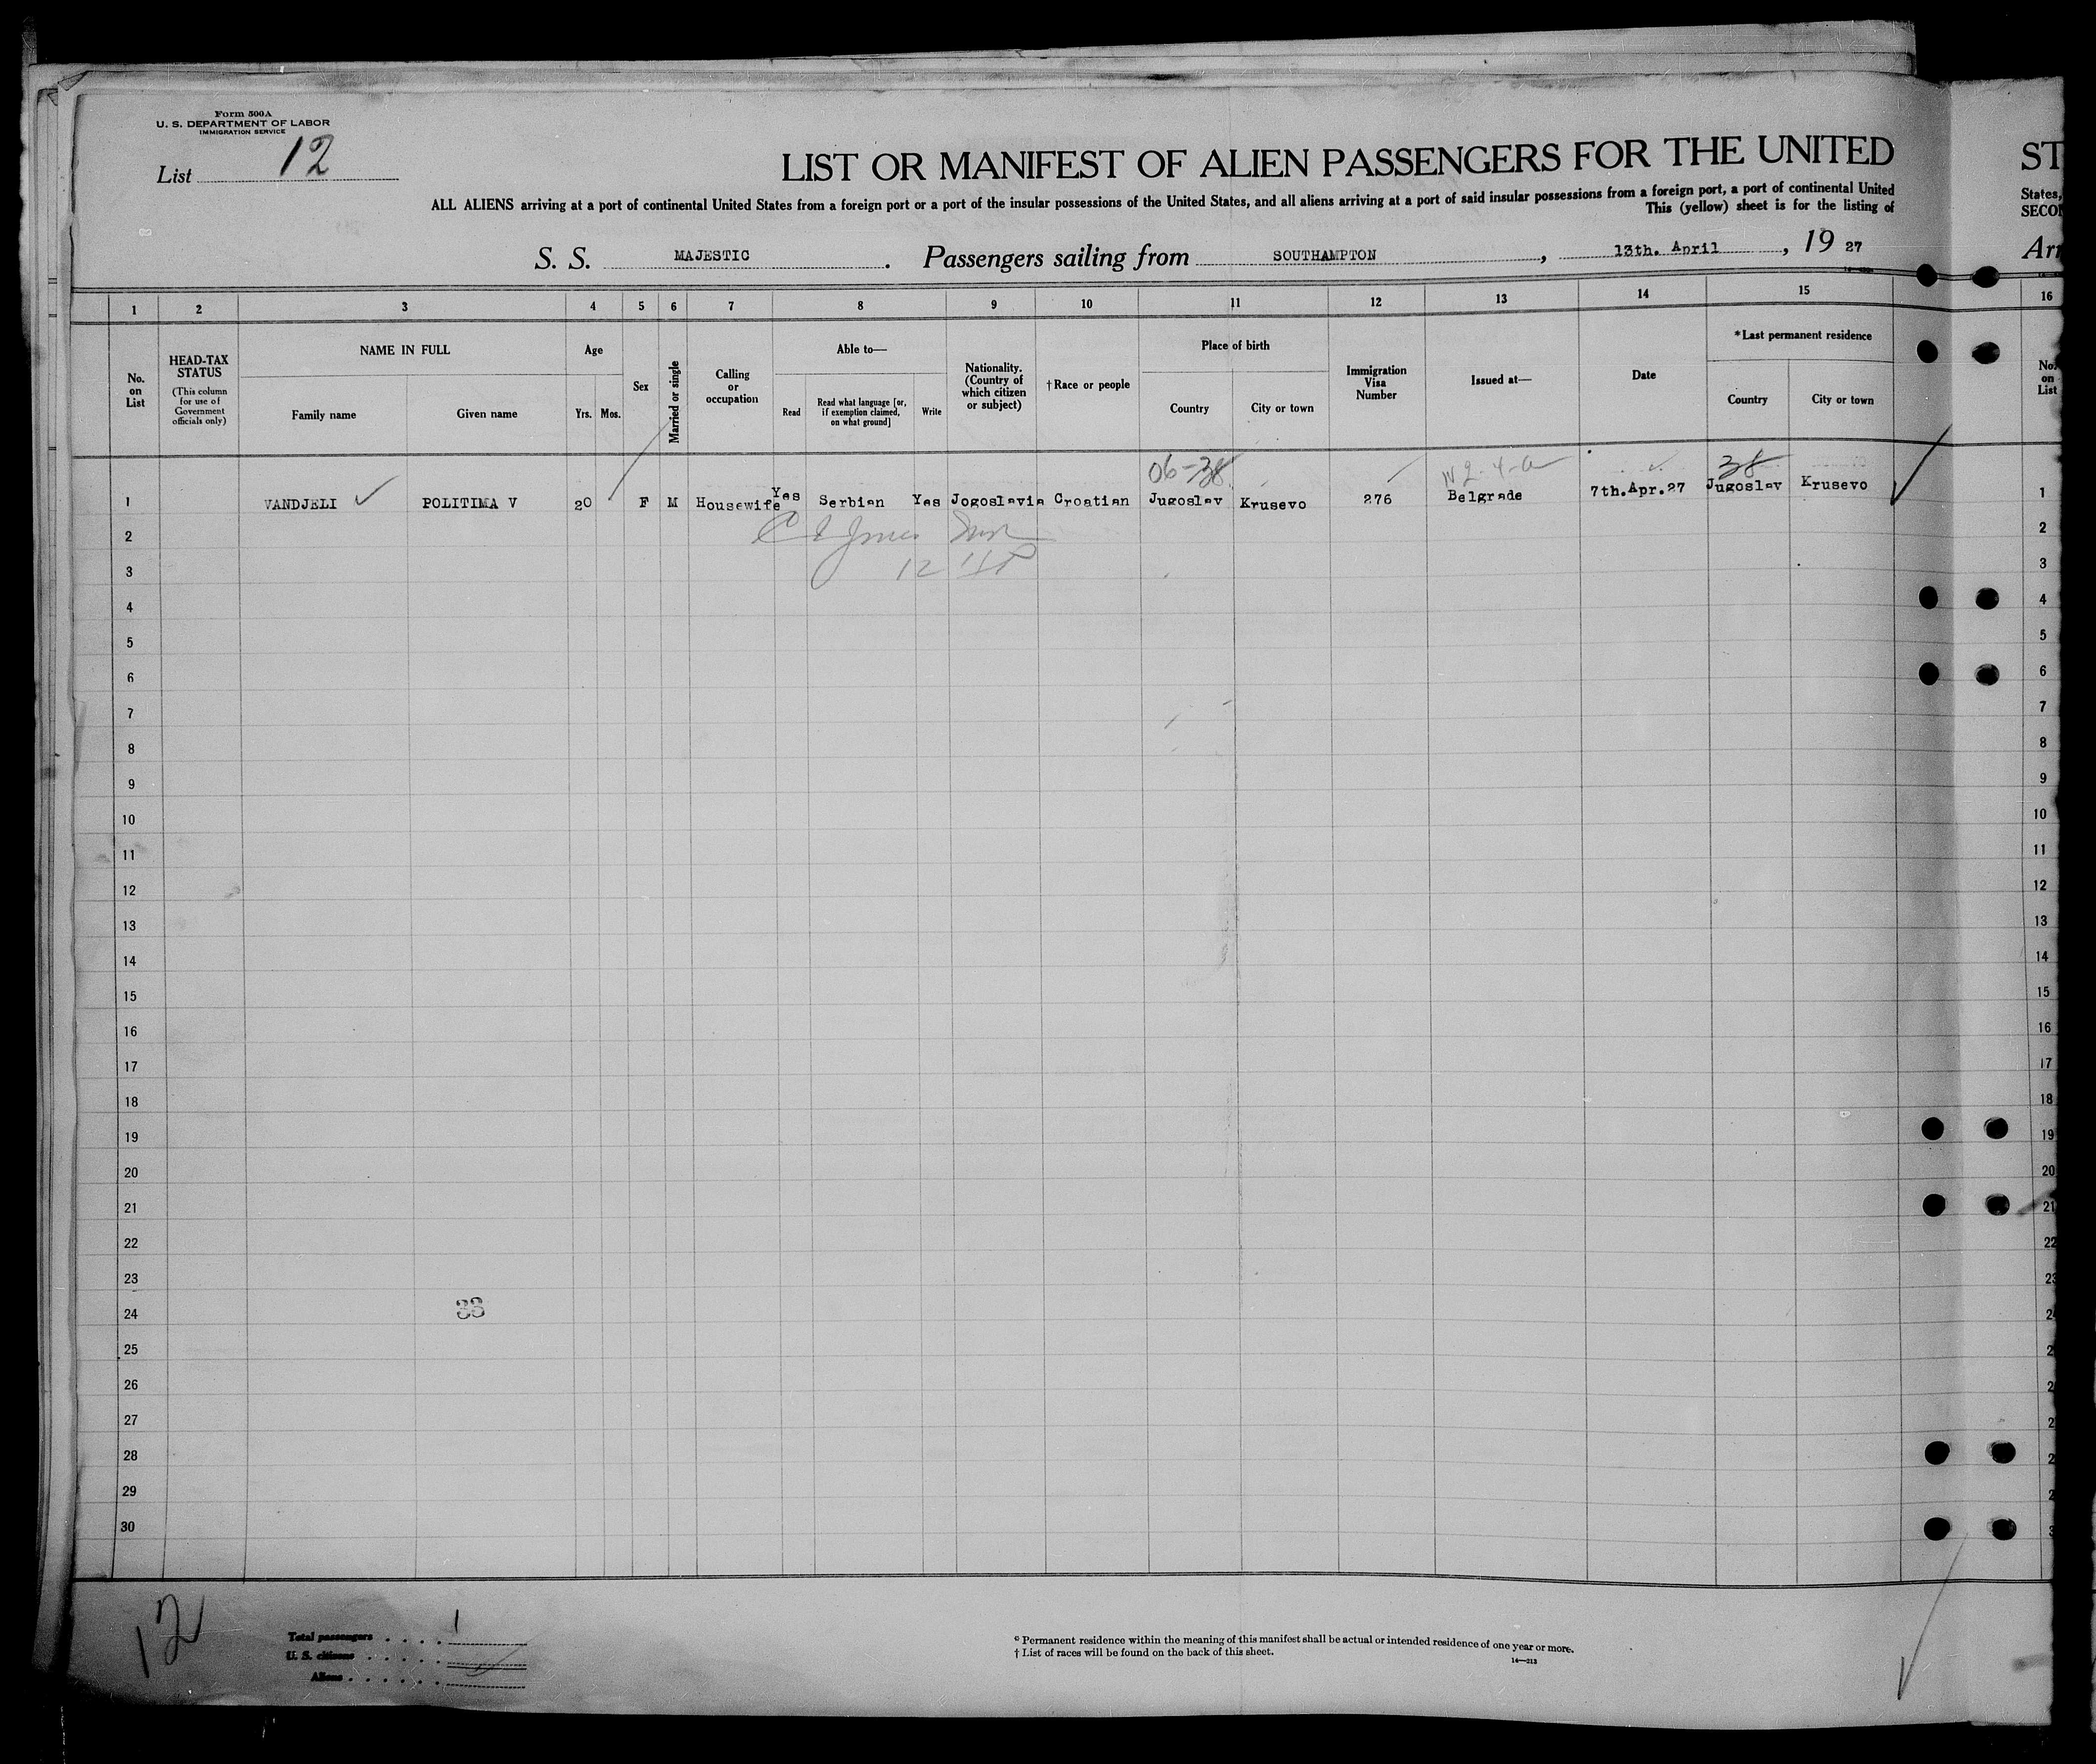 Form 500A
U. S. DEPARTMENT OF LABOR
IMMIGRATION SERVICE
List 12
LIST OR MANIFEST OF ALIEN PASSENGERS FOR THE UNITED
ST
ALL ALIENS arriving at a port of continental United States from a foreign port or a port of the insular possessions of the United States, and all aliens arriving at a port of said insular possessions from a foreign port, a port of continental United
States,
This (yellow) sheet is for the listing of
SECO
S. S. MAJESTIC . Passengers sailing from SOUTHAMPTON , 13th. April , 19 27
Arr
1 2 3 4 5 6 7 8 9 10 11 12 13 14 15 16
No. on List
HEAD-TAX STATUS
(This column for use of Government officials only)
NAME IN FULL
Family name Given name
Age
Yrs. Mos.
Sex
Married or single
Calling or occupation
Able to—
Read
Read what language [or, if exemption claimed, on what ground]
Write
Nationality. (Country of which citizen or subject)
†Race or people
Place of birth
Country City or town
Immigration Visa Number
Issued at—
Date
*Last permanent residence
Country City or town
No. on List
06-38 38
1 VANDJELI POLITIMA V 20 F M Housewife Yes Serbian Yes Jogoslavia Croatian Jugoslav Krusevo 276 Belgrade 7th.Apr.27 Jugoslav Krusevo 1
2 2
3 12 3
4 4
5 5
6 6
7 7
8 8
9 9
10 10
11 11
12 12
13 13
14 14
15 15
16 16
17 17
18 18
19 19
20 20
21 21
22 22
23 23
24 33 24
25 2
26 2
27 2
28 2
29 2
30 3
12
Total passengers . . . . 1
U. S. citizens . . . . .
Aliens . . . . . .
* Permanent residence within the meaning of this manifest shall be actual or intended residence of one year or more.
† List of races will be found on the back of this sheet.
14—213